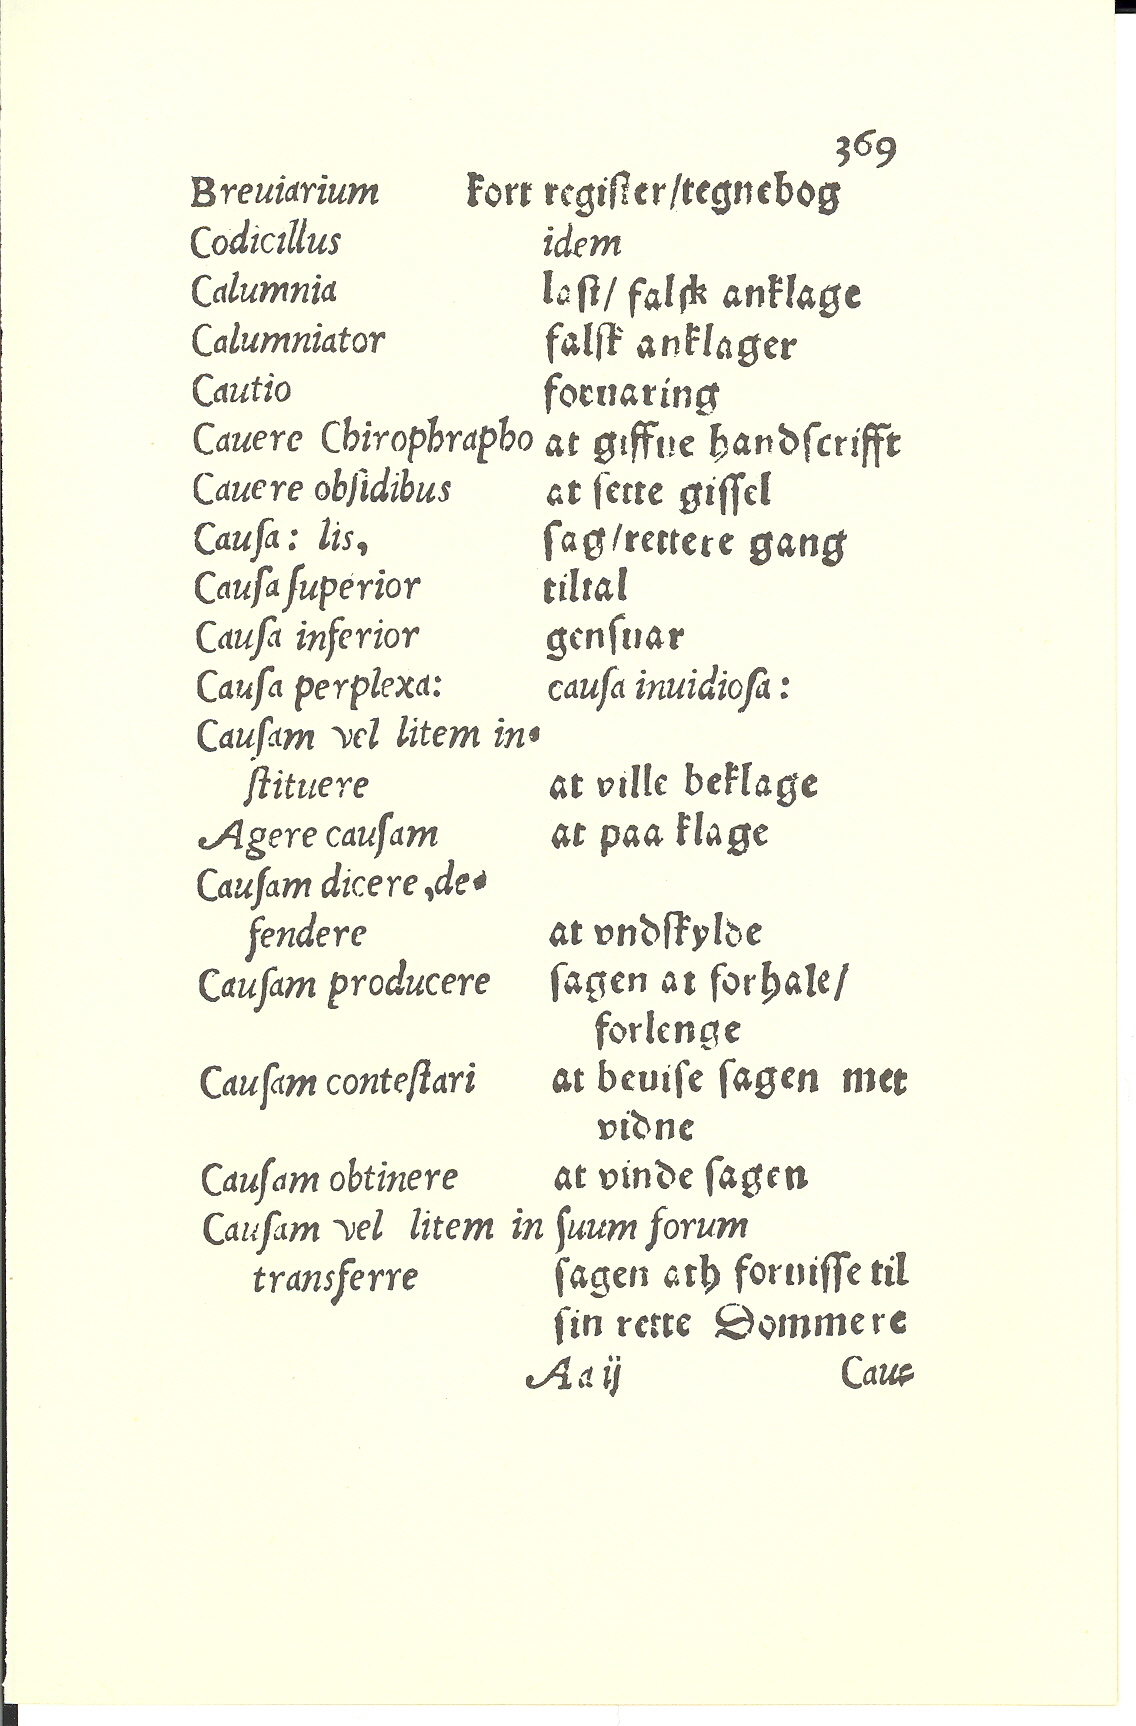 369
Breuiarium kort regiſter/tegnebog
Codicillus idem
Calumnia laſt/ falſk anklage
Calumniator falſk anklager
Cautio foruaring
Cauere Chirophrapho at giffue handſcrifft
Cauere obſidibus at ſette giſſel
Cauſa: lis, ſag/rettere gang
Cauſa ſuperior tiltal
Cauſa inferior genſuar
Cauſa perplexa: cauſa inuidioſa:
Cauſam vel litem in-
ſtituere at ville beklage
Agere cauſam at paa klage
Cauſam dicere, de-
fendere at vndſkylde
Cauſam producere ſagen at forhale/
forlenge
Cauſam conteſtari at beuiſe ſagen met
vidne
Cauſam obtinere at vinde ſagen
Cauſam vel litem in ſuum forum
transferre ſagen ath foruiſſe til
ſin rette Dommere
Aa ij Cau-